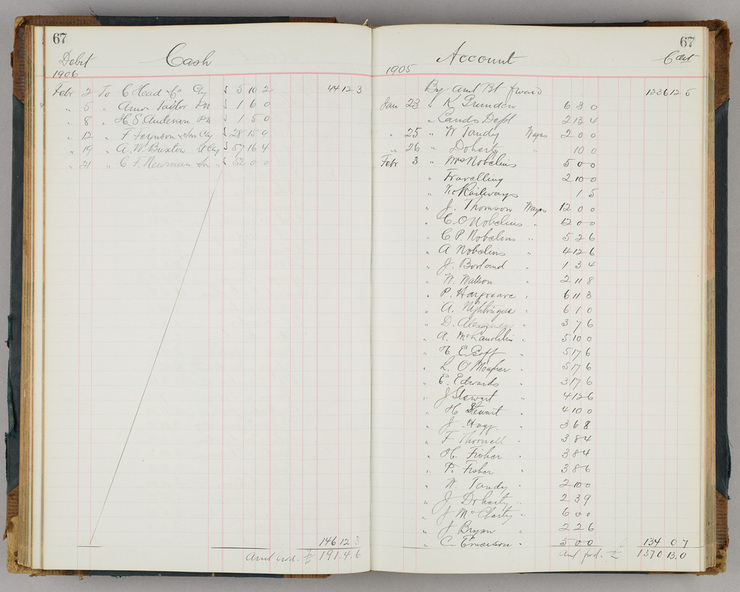 67
Debit Cash
1906
Febr 2 To C Head & Co 5 10 2 44 12 3
" 6 " Amos Tailor 1 6 0
" 8 " H. S. Anderson 1 5 0
" 12 " F. Ferguson & Son
" 19 " A. W. Buxton 57 16 4
" 21 " C. F. Newman 12 0 0
146 12 3
Amt fwd. 191 4 6
67
Account Cdt
1905
By Amt Bt forward 1236 12 5
Jan 23 " 6 3 0
" Lands Dept 2 13 4
" 25 " W Tandy Wages 2 0 0
" 26 " Doharty 10 0
Febr 3 " Nobelius 5 0 0
" Travelling 2 10 0
" Railways 1 5
" J. Thomson Wages 12 0 0
" C. O. Nobelius " 12 0 0
" C P. Nobelius " 5 2 6
" A Nobelius 4 12 6
" J. 1 3 4
" W. Watson " 2 11 8
" P. Hargreave " 6 11 3
" A. Nightingale " 6 1 0
" D. 3 7 6
" A. McLauchlin " 5 10 0
" H. E. Goft " 5 17 6
" L. O'Meagher " 5 17 6
" E. Edwards " 3 17 6
" J Stewart " 4 12 6
" H Stewart " 4 10 0
" J. Hagg " 3 6 8
" F " 3 8 4
" H. Fisher " 3 8 4
" P. Fisher " 3 8 6
" W. Tandy " 2 10 0
" J Doharty " 2 3 9
" J McClarty " 6 0 0
" J Bryan " 2 2 6
" C. Emerson " 5 0 0 134 0 7
Amt fwd. 1370 13 0